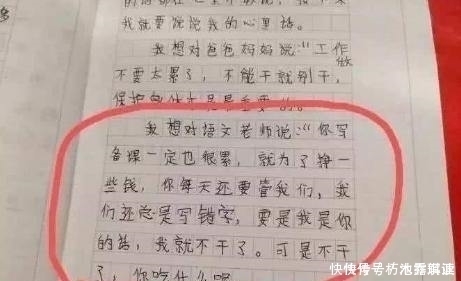 我就要说说我的心里话。
我想对爸爸妈妈说：“工作做
不要太累了，不能干就别干，
保护身体才是最重要的。
我想对语文老师说：“你写
备课一定也很累，就为了挣一
些钱，你每天还要管我们，我
们还总是写错字，要是我是你
的话，我就不干了。可是不干
了，你吃什么呢
快传号/枋池露骐谜